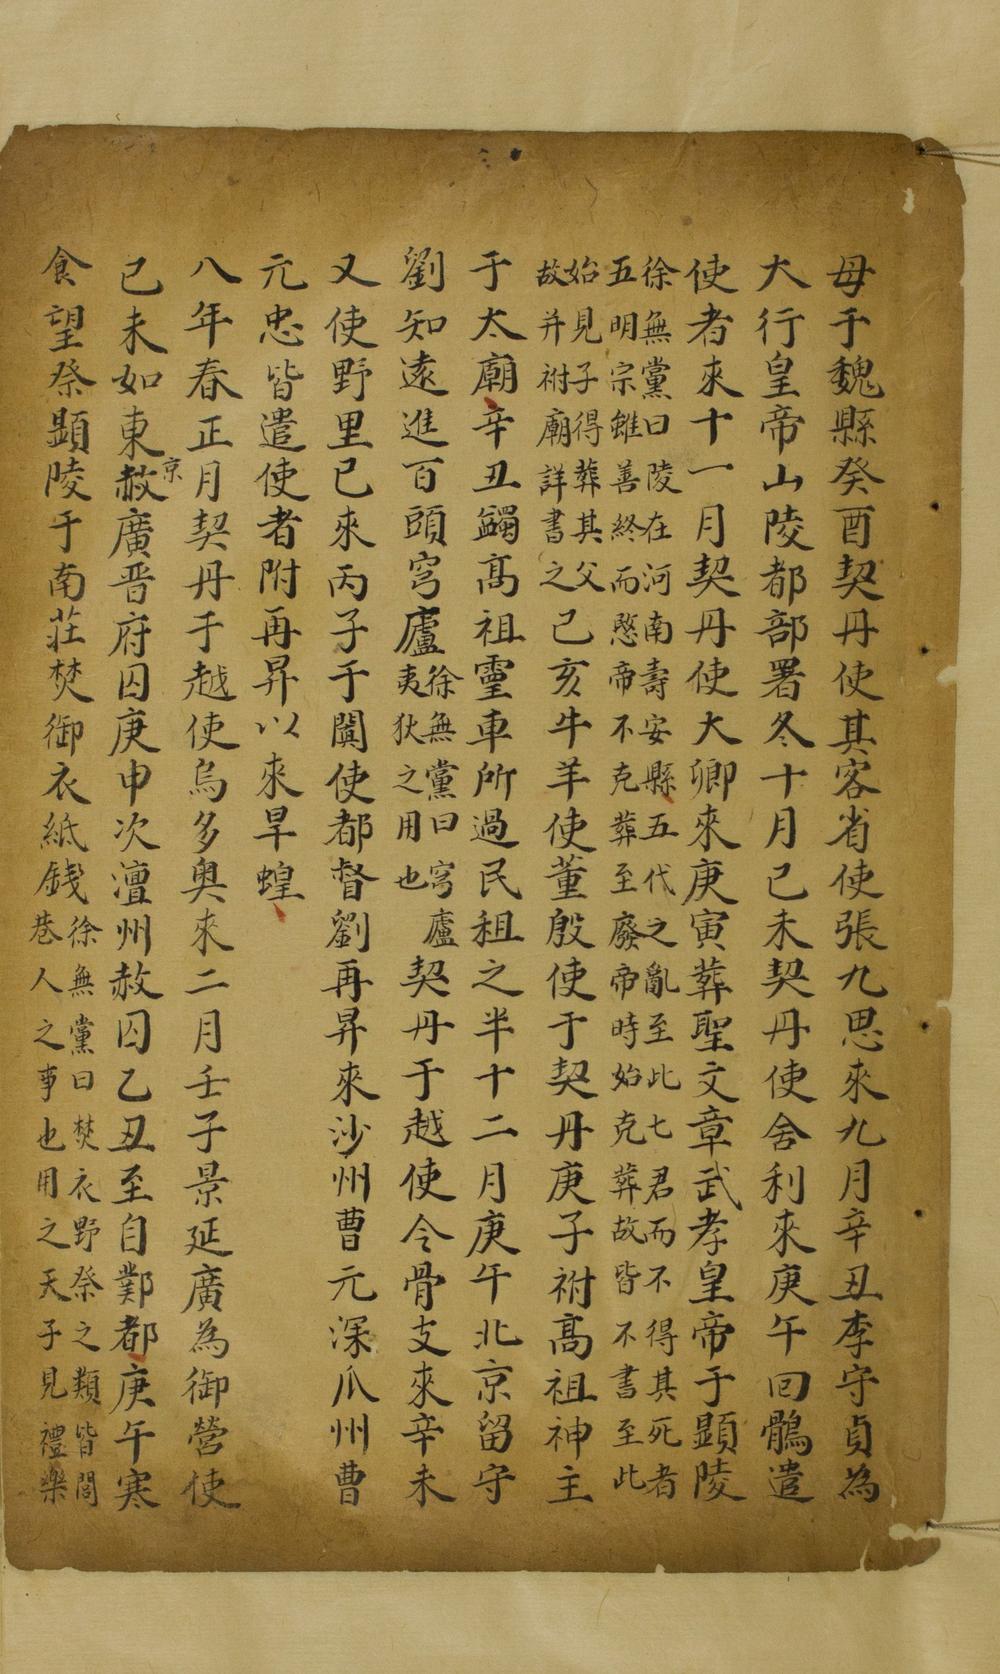 母于魏縣癸酉契丹使其客省使張九思來九月辛丑李守貞為
大行皇帝山陵都部署冬十月己未契丹使舍利來庚午回鶻遣
使者來十一月契丹使大卿來庚寅葬聖文章武孝皇帝于顯陵
徐無黨曰陵在河南壽安縣五代之亂至此七君而不得其死者
五明宗雖善終而愍帝不克葬至廢帝時始克葬故皆不書至此
始見子得葬其父
故并祔廟詳書之
己亥牛羊使董殷使于契丹庚子祔髙祖神主
于太廟辛丑蠲髙祖靈車所過民租之半十二月庚午北京留守
劉知遠進百頭穹廬
徐無黨曰穹廬
夷狄之用也
契丹于越使令骨支來辛未
又使野里已來丙子于闐使都督劉再昇來沙州曹元深爪州曹
元忠皆遣使者附再昇以來旱蝗
八年春正月契丹于越使烏多奥來二月壬子景延廣為御營使
己未如東京赦廣晉府囚庚申次澶州赦囚乙丑至自鄴都庚午寒
食望祭顯陵于南莊焚御衣紙錢
徐無黨曰焚衣野祭之類皆閭
巷人之事也用之天子見禮樂